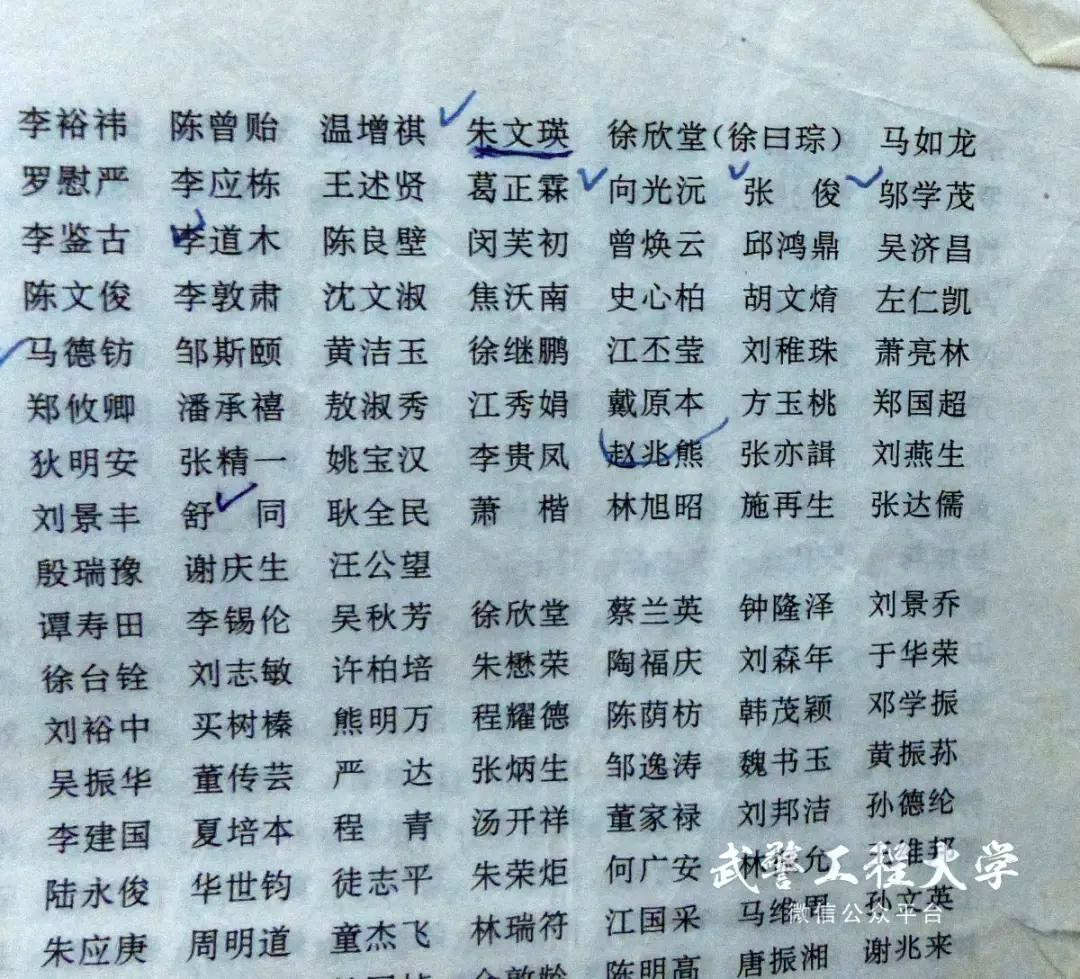 李裕祎 陈曾贻 温增祺 朱文瑛 徐欣堂(徐曰琮) 马如龙
罗慰严 李应栋 王述贤 葛正霖 向光沅 张 俊 邬学茂
李鉴古 李道木 陈良壁 闵芙初 曾焕云 邱鸿鼎 吴济昌
陈文俊 李敦肃 沈文淑 焦沃南 史心柏 胡文焴 左仁凯
马德钫 邹斯颐 黄洁玉 徐继鹏 江丕莹 刘稚珠 萧亮林
郑攸卿 潘承禧 敖淑秀 江秀娟 戴原本 方玉桃 郑国超
狄明安 张精一 姚宝汉 李贵凤 赵兆熊 张亦諿 刘燕生
刘景丰 舒 同 耿全民 萧 楷 林旭昭 施再生 张达儒
殷瑞豫 谢庆生 汪公望
谭寿田 李锡伦 吴秋芳 徐欣堂 蔡兰英 钟隆泽 刘景乔
徐台铨 刘志敏 许柏培 朱懋荣 陶福庆 刘森年 于华荣
刘裕中 买树榛 熊明万 程耀德 陈荫枋 韩茂颖 邓学振
吴振华 董传芸 严 达 张炳生 邹逸涛 魏书玉 黄振荪
李建国 夏培本 程 青 汤开祥 董家禄 刘邦洁 孙德纶
陆永俊 华世钧 徒志平 朱荣炬 何广安 林 允 维邦
朱应庚 周明道 童杰飞 林瑞符 江国采 马维 孙文英
陈明高 唐振湘 谢兆来
武警工程大学
微信公众平台